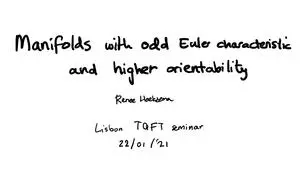 Manifolds with odd Euler characteristic
and higher orientability
Renee Hoekzema
Lisbon TQFT seminar
22/01/'21